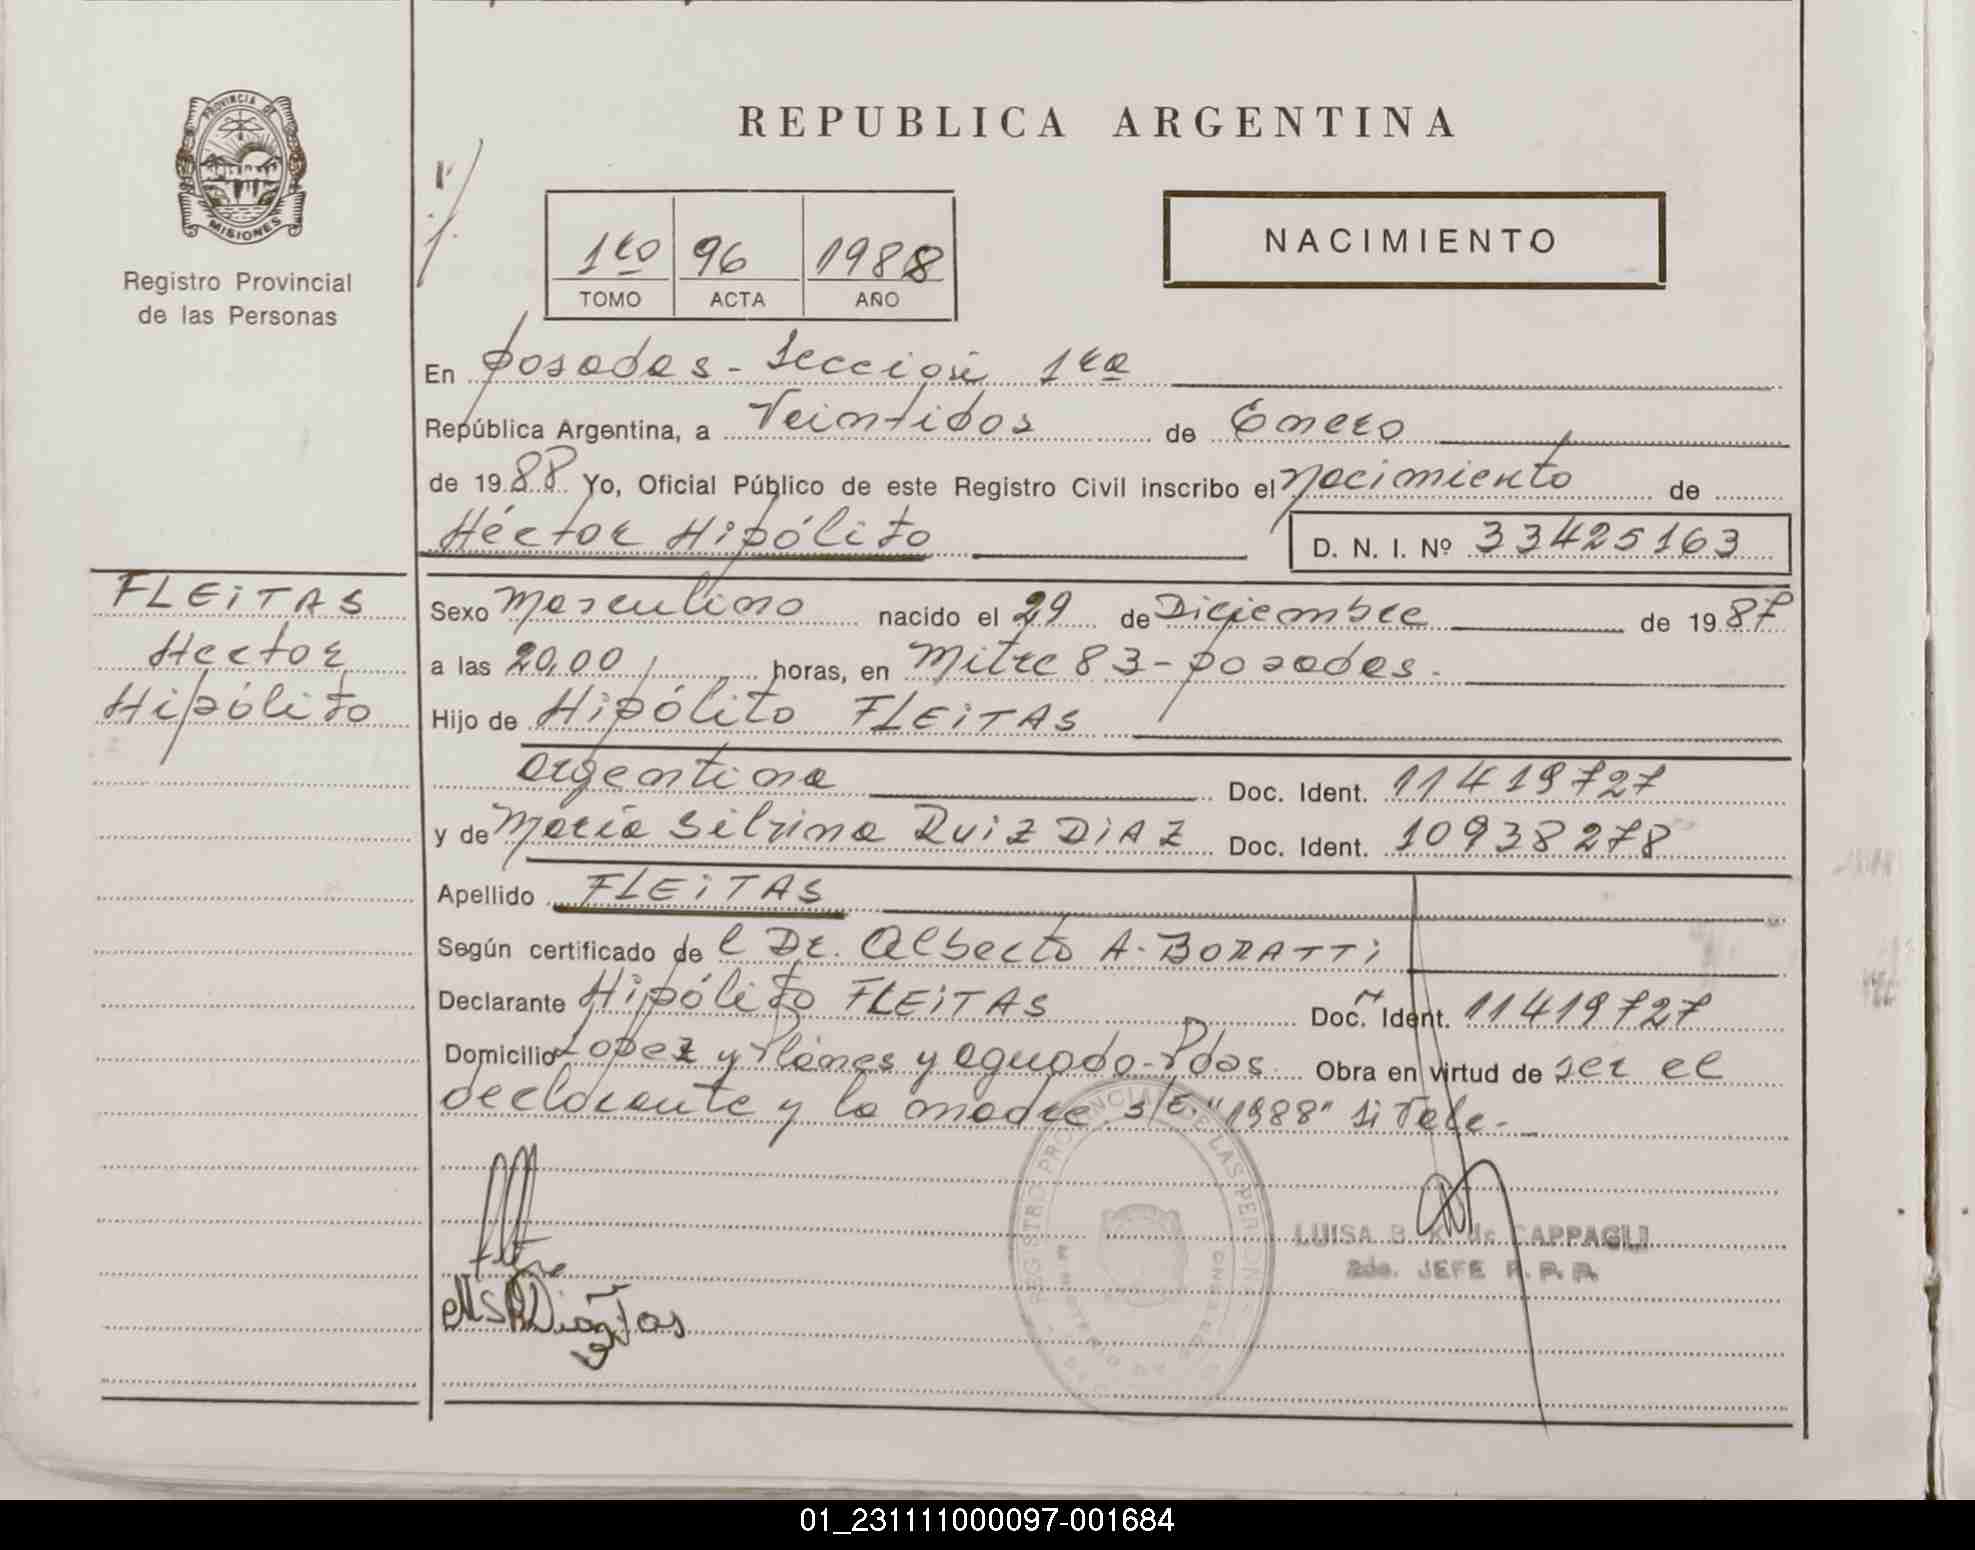 REPUBLICA ARGENTINA
PROVINCIA DE
MISIONES
Registro Provincial
de las Personas
1ro 96 1988
TOMO ACTA AÑO
NACIMIENTO
En Posadas - Sección 1ra
República Argentina, a Veintidos de Enero
de 1988 Yo, Oficial Público de este Registro Civil inscribo el Nacimiento de
Héctor Hipólito D. N. I. Nº 33425163
FLEiTAS
Hector
Hipólito
Sexo Masculino nacido el 29 de Diciembre de 1987
a las 20,00 horas, en Mitre 83 - posadas.
Hijo de Hipólito FLEiTAS
argentina Doc. Ident. 11419727
y de María Silvina RUiZ DiAZ Doc. Ident. 10938278
Apellido FLEiTAS
Según certificado de l Dr. Alberto A. BORATTi
Declarante Hipólito FLEiTAS Doc. Ident. 11419727
Domicilio Lopez y Planes y aguado - Pdas Obra en virtud de ser el
declarante y la madre. s/E. "1988" Si Vale -
REGISTRO PROVINCIAL DE LAS PERSONAS
LUISA B. K. de CAPPAGLI
2da. JEFE R. P. P.
01_231111000097-001684